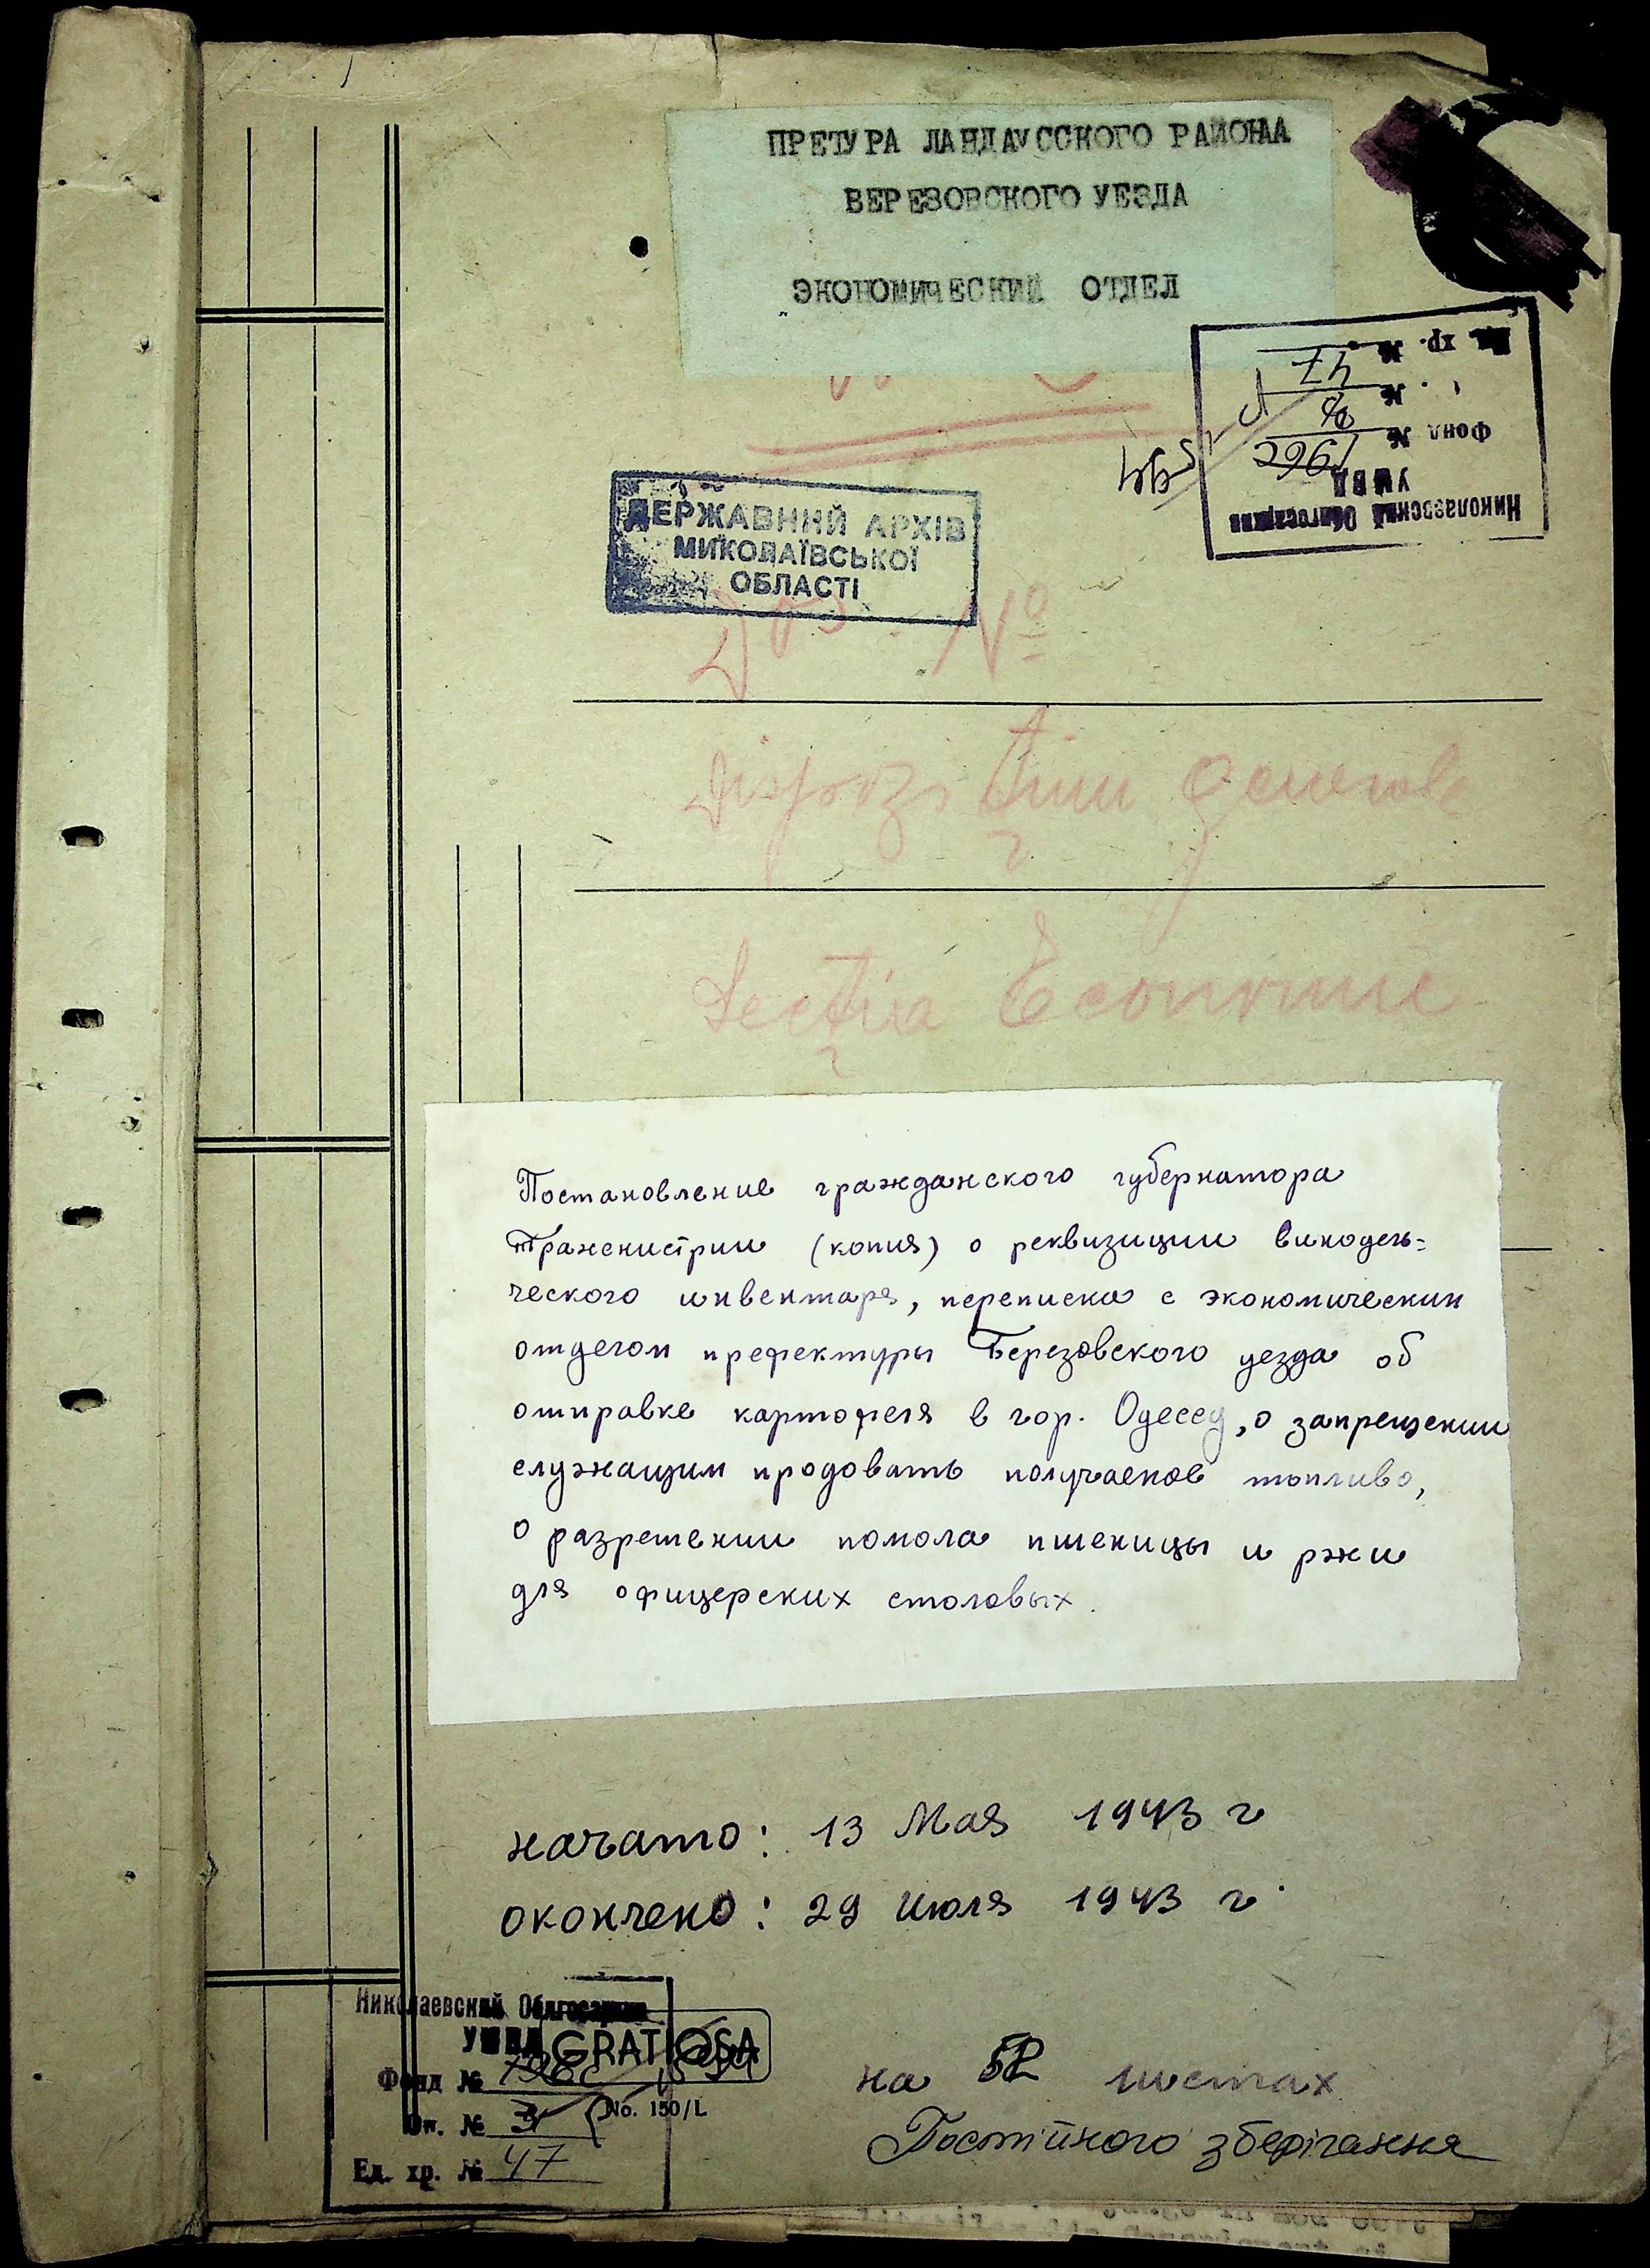 ПРЕТУРА ЛАНДАУССКОГО РАЙОНАА
БЕРЕЗОВСКОГО УЕЗДА
ЭКОНОМИЧЕСКИЙ ОТДЕЛ
Ед. хр. № 47
№
Фонд № 796с
УМВД
Николаевский Облгосархив
ДЕРЖАВНИЙ АРХІВ
МИКОЛАЇВСЬКОЇ
ОБЛАСТІ
Dos No
Dispozițiuni generale
Secția Economic
Постановление гражданского губернатора
Транснистрии (копия) о реквизиции винодель=
ческого инвентаря, переписка с экономическим
отделом префектуры Березовского уезда об
отправке картофеля в гор. Одессу, о запрещении
служащим продовать получаемое топливо,
о разрешении помола пшеницы и ржи
для офицерских столовых.
начато: 13 Мая 1943 г
окончено: 29 Июля 1943 г.
Николаевский Облгосархив
УМВД GRATIOSA
Фонд № 796с
Оп. № No. 150/L
Ед. хр. № 47
на 52 листах
Постійного зберігання